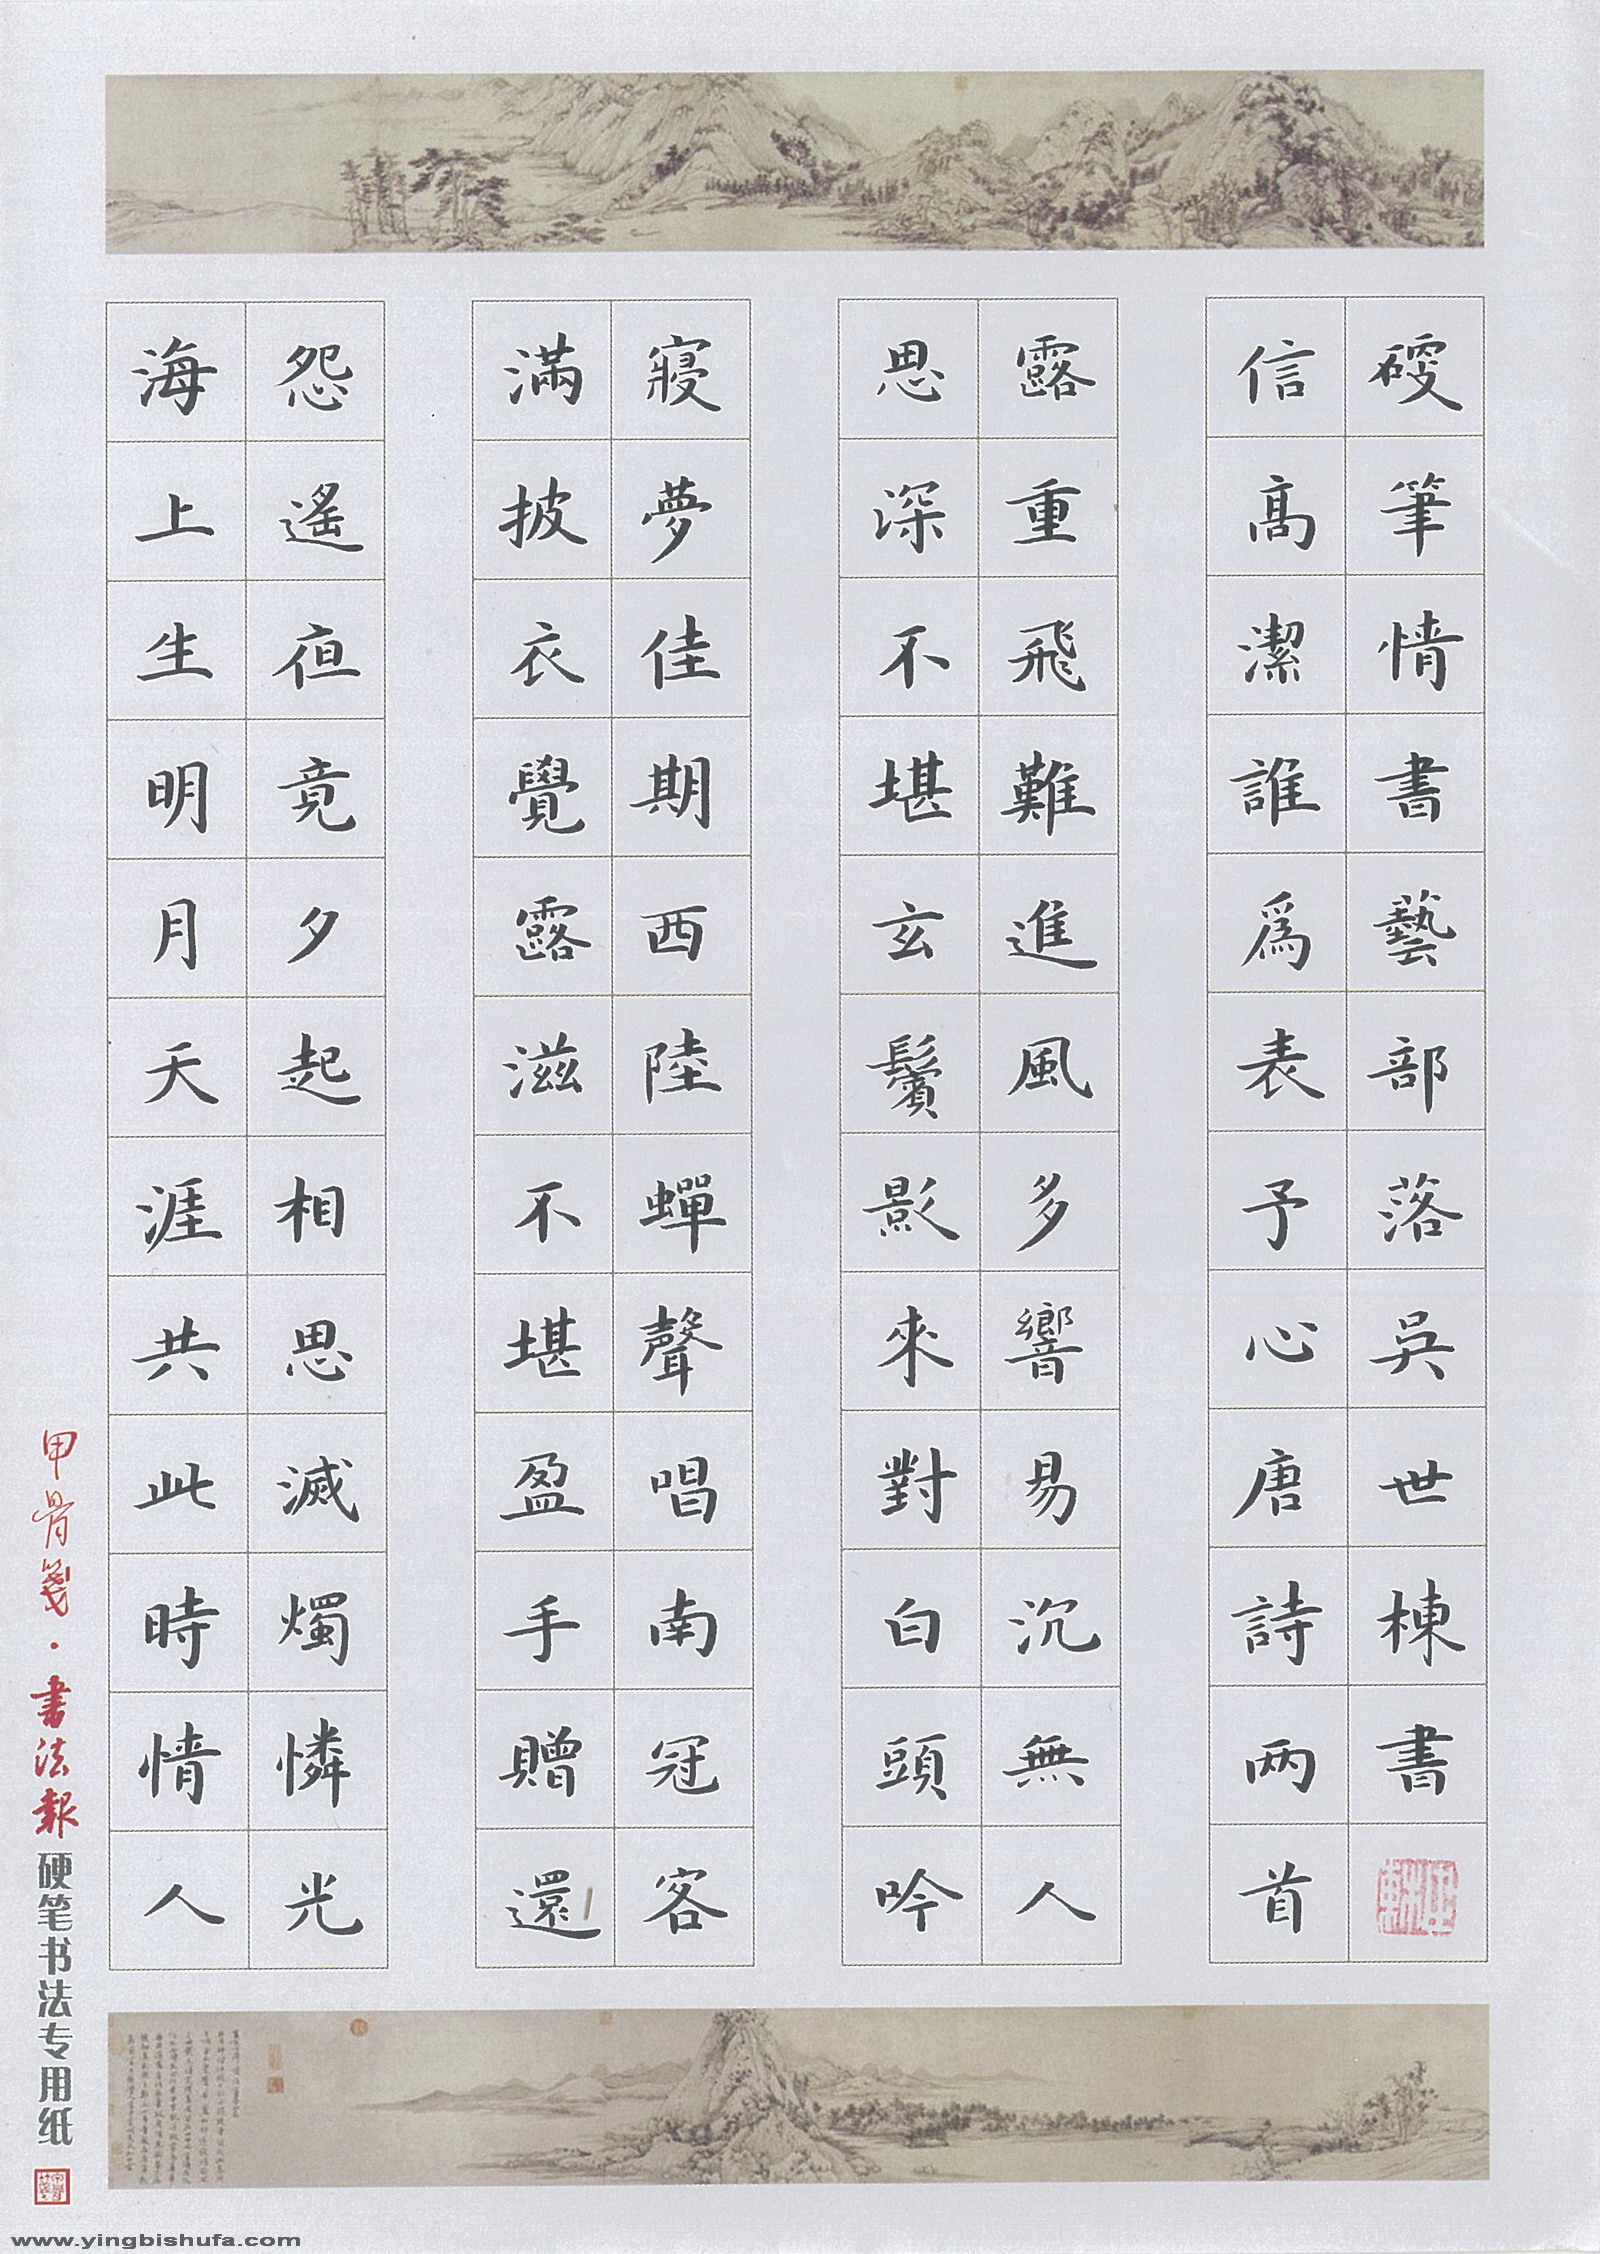 海上生明月天涯共此時情人
怨遙夜竟夕起相思滅燭憐光
滿披衣覺露滋不堪盈手贈還
寢夢佳期西陸蟬聲唱南冠客
思深不堪玄鬢影來對白頭吟
露重飛難進風多響易沉無人
信高潔誰爲表予心唐詩两首
硬筆情書藝部落吳世棟書
甲骨箋·書法報硬笔书法专用纸
www.yingbishufa.com